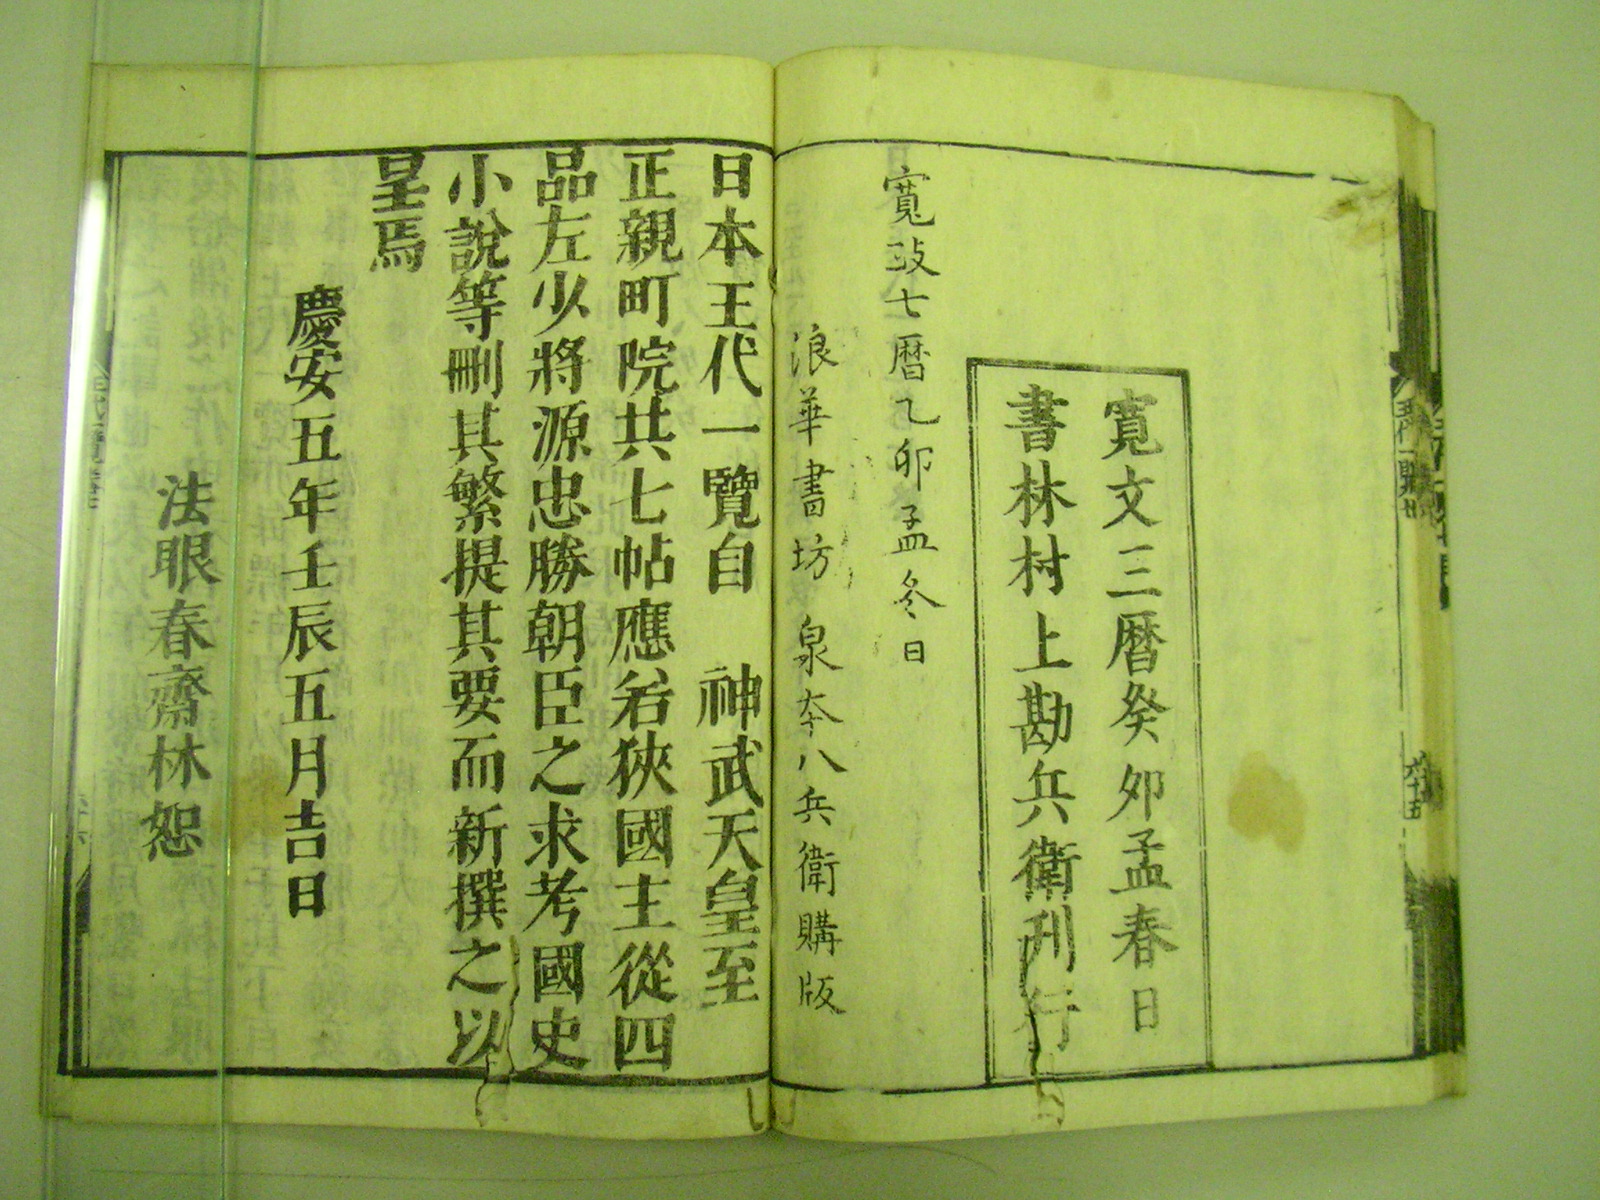 寛文三暦癸夘孟春日
書林村上勘兵衛刋行
寛政七暦乙卯孟冬日
浪華書坊 泉本八兵衛購版
日本王代一覽自 神武天皇至
正親町院共七帖應若狹國主從四
品左少將源忠勝朝臣之求考國史
小說等刪其繁提其要而新撰之以
呈焉
慶安五年壬辰五月吉日
法眼春齋林恕